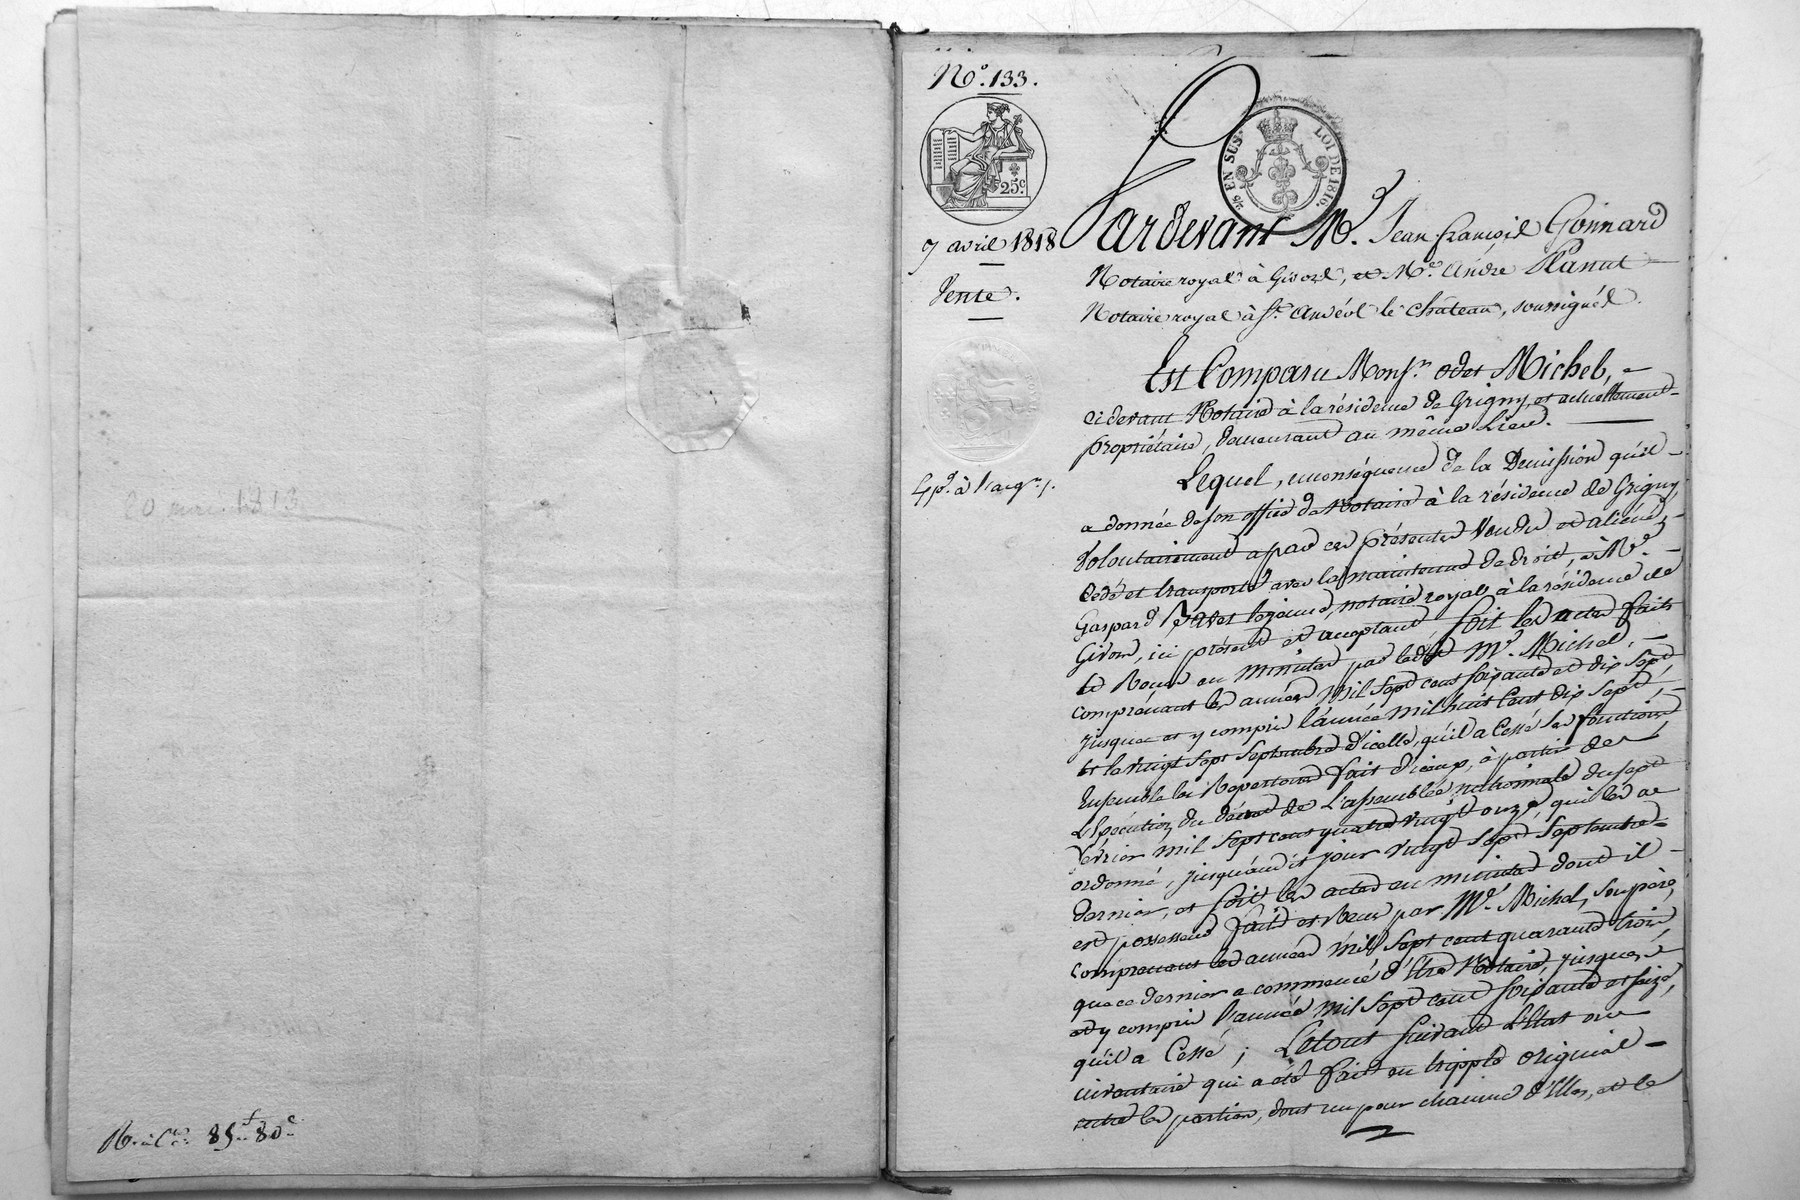 20 mai 1813
85 f 80 c
N.º 133.
25 c.
EN SUS.
LOI DE 1816.
7 avril 1818
Vente.
Exp.d à l'acqr.
Pardevant M.e Jean françois Gonnard
Notaire royal à Givors, et M.e André Planut
Notaire royal à St. Andéol le château, soussignés
Est Comparu Monsr. odet Michel,
ci devant Notaire à la résidence de Grigny, et actuellement
propriétaire, demeurant au même Lieu.
Lequel, en conséquence de la Demission qu'il
a donnée de son office de Notaire à la résidence de Grigny,
Volontairement a par ces présentes Vendu et aliéné,
cédé et transporté avec la maintenue de droit, à M.e
Gaspard le jeune, notaire royal à la résidence de
Givors, ici présent et acceptant Soit les actes faits
et Reçus en minutes par ledit M.e Michel,
comprenant les années mil sept cent soixante et dix sept,
jusques et y compris l'année mil huit cent dix sept,
et le vingt sept septembre d'icelle, qu'il a Cessé ses fonctions,
Ensemble les Repertoires fait d'iceux, à partir de
L'Exécution du décret de L'assemblée nationale du sept
février mil sept cent quatre vingt onze, qui les a
ordonné, jusqu'audit jour vingt sept septembre
dernier, et soit les actes en minutes dont il
est possesseur faits et Reçus par M.e Michel, son père,
comprenant les années mil sept cent quarante trois,
que ce dernier a commencé d'Etre Notaire, jusques
et y compris l'année mil sept cent soixante et seize,
qu'il a Cessé ; Le tout suivant L'Etat ou
inventaire qui a été fait en tripple original
entre les parties, dont un pour chacune d'Elles, et le